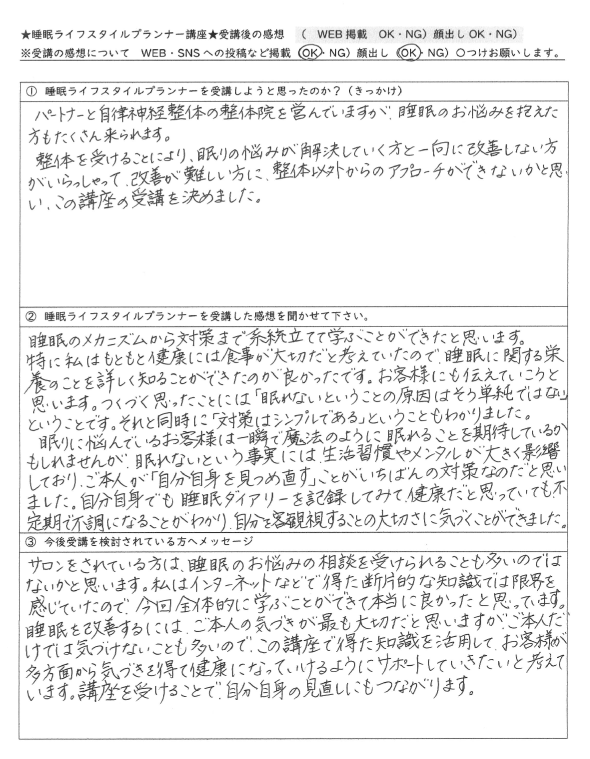 ★睡眠ライフスタイルプランナー講座★受講後の感想　（　WEB掲載　OK・NG）顔出しOK・NG）
※受講の感想について　WEB・SNSへの投稿など掲載　OK・NG）顔出し　OK・NG）〇つけお願いします。
① 睡眠ライフスタイルプランナーを受講しようと思ったのか？（きっかけ）
パートナーと自律神経整体の整体院を営んでいますが、睡眠のお悩みを抱えた
方もたくさん来られます。
整体を受けることにより、眠りの悩みが解決していく方と一向に改善しない方
がいらっしゃって、改善が難しい方に、整体以外からのアプローチができないかと思
い、この講座の受講を決めました。
② 睡眠ライフスタイルプランナーを受講した感想を聞かせて下さい。
睡眠のメカニズムから対策まで系統立てて学ぶことができたと思います。
特に私はもともと健康には食事が大切だと考えていたので、睡眠に関する栄
養のことを詳しく知ることができたのが良かったです。お客様にも伝えていこうと
思います。つくづく思ったことには「眠れないということの原因はそう単純ではない」
ということです。それと同時に「対策はシンプルである」ということもわかりました。
眠りに悩んでいるお客様は一瞬で魔法のように眠れることを期待しているか
もしれませんが、眠れないという事実には、生活習慣やメンタルが大きく影響
しており、ご本人が「自分自身を見つめ直す」ことがいちばんの対策なのだと思い
ました。自分自身でも睡眠ダイアリーを記録してみて健康だと思っていても不
定期で不調になることがわかり、自分を客観視することの大切さに気づくことができました。
③ 今後受講を検討されている方へメッセージ
サロンをされている方は、睡眠のお悩みの相談を受けられることも多いのでは
ないかと思います。私はインターネットなどで得た断片的な知識では限界を
感じていたので、今回全体的に学ぶことができて本当に良かったと思っています。
睡眠を改善するには、ご本人の気づきが最も大切だと思いますが、ご本人だ
けでは気づけないことも多いので、この講座で得た知識を活用して、お客様が
多方面から気づきを得て健康になっていけるようにサポートしていきたいと考えて
います。講座を受けることで、自分自身の見直しにもつながります。